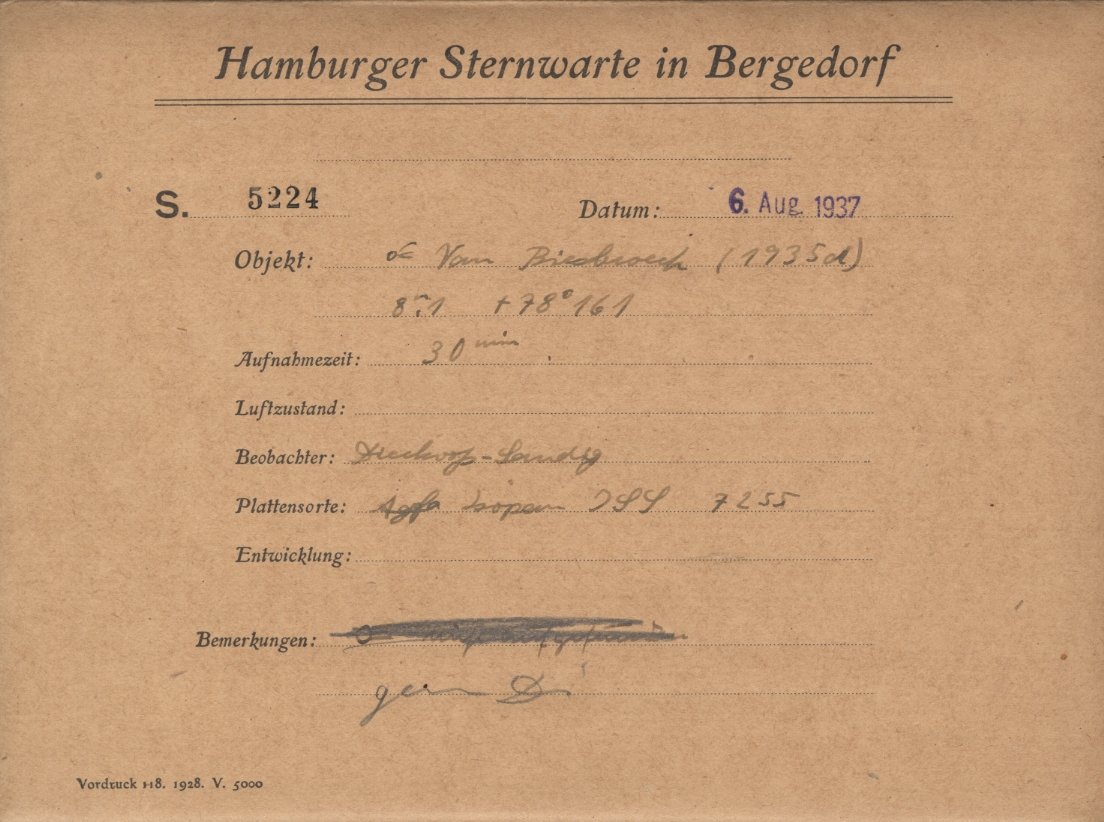 Hamburger Sternwarte in Bergedorf
S. 5224 Datum: 6. Aug. 1937
Objekt: ☄ Van Biesbroeck (1935d)
8ᵐ.1 +78°161
Aufnahmezeit: 30 min
Luftzustand:
Beobachter: Dieckvoss-
Plattensorte: Agfa Isopan ISS 7255
Entwicklung:
Bemerkungen:
gem Di
Vordruck 118. 1928. V. 5000